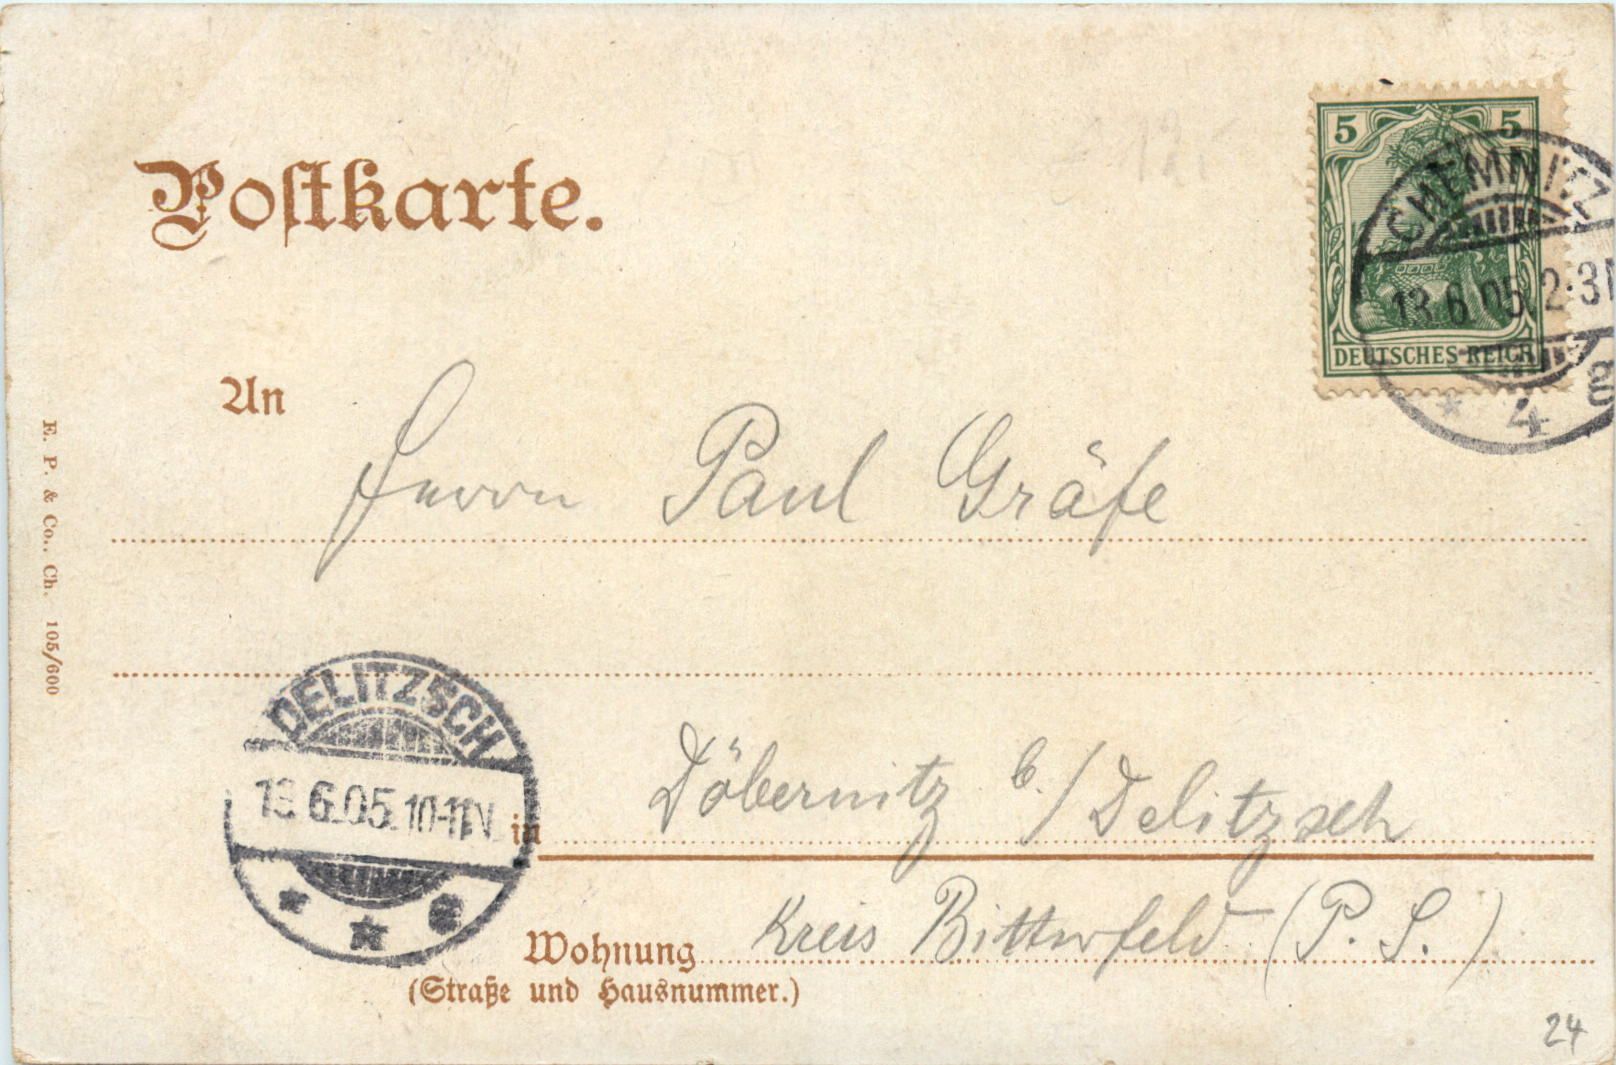 Postkarte.
5 5
DEUTSCHES REICH
CHEMNITZ
13.6.05. 2-3N
* 4 g
An
Herrn Paul Gräfe
DELITZSCH
13.6.05. 10-11N.
in
Döbernitz b./Delitzsch
Wohnung
Kreis Bitterfeld (P. S.)
(Straße und Hausnummer.)
E. P. & Co., Ch. 105/600
24